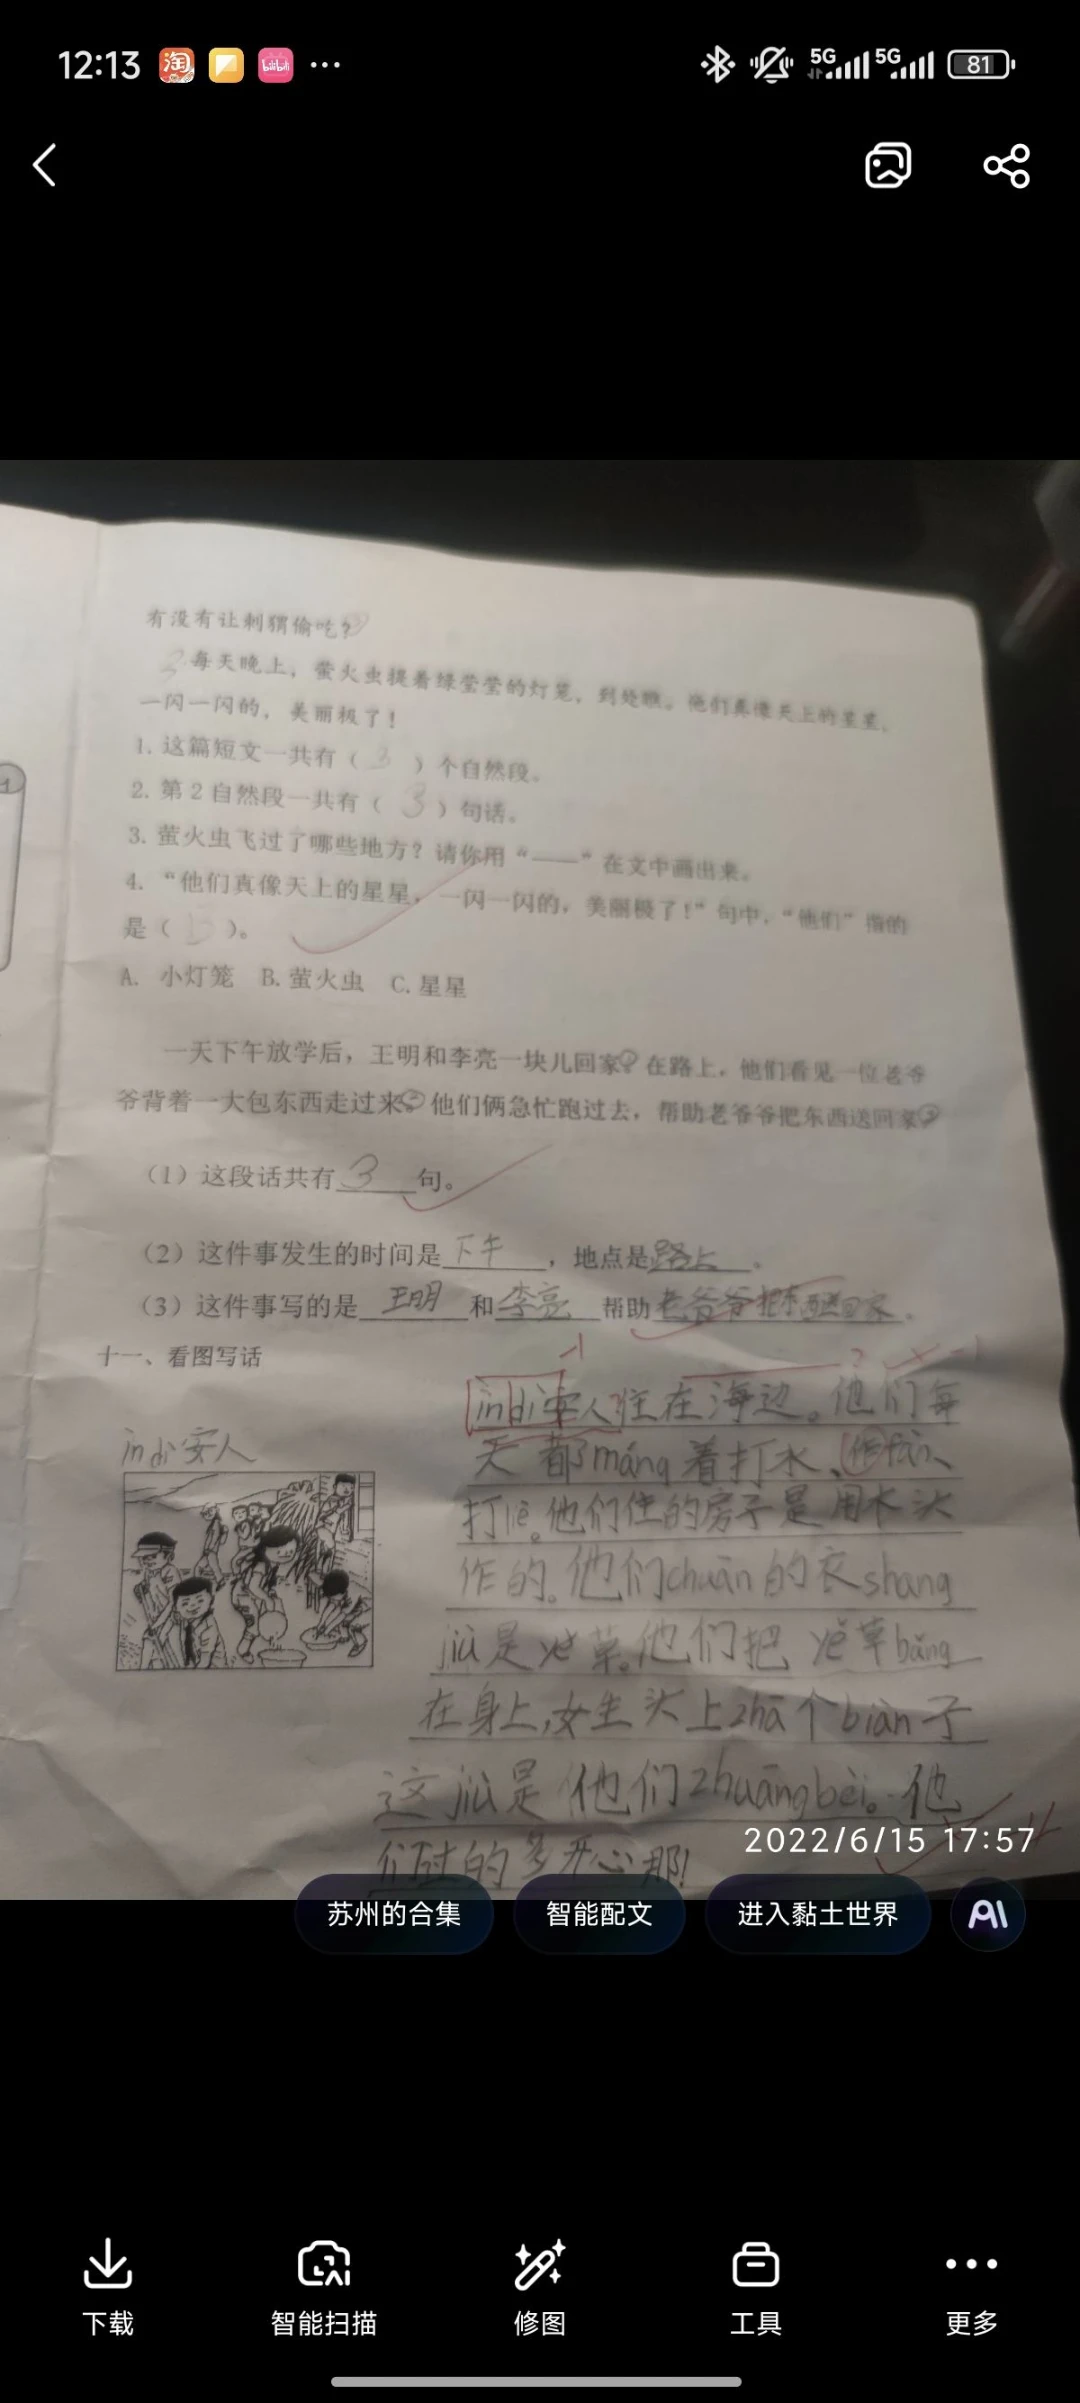 12:13 淘 bilibili ··· 5G 5G 81
有没有让刺猬偷吃?
3 每天晚上,萤火虫提着绿莹莹的灯笼,到处瞧。他们真像天上的星星,
一闪一闪的,美丽极了!
1. 这篇短文一共有( 3 )个自然段。
2. 第2自然段一共有( 3 )句话。
3. 萤火虫飞过了哪些地方?请你用“——”在文中画出来。
4. “他们真像天上的星星,一闪一闪的,美丽极了!”句中,“他们”指的
是( b )。
A. 小灯笼 B. 萤火虫 C. 星星
一天下午放学后,王明和李亮一块儿回家。在路上,他们看见一位老爷
爷背着一大包东西走过来。他们俩急忙跑过去,帮助老爷爷把东西送回家。
(1)这段话共有 3 句。
(2)这件事发生的时间是 下午 ,地点是 路上 。
(3)这件事写的是 王明 和 李亮 帮助 老爷爷把东西送回家 。
十一、看图写话
-1
in di安人
in di安人住在海边。他们每
天都máng着打水、作fàn、
打liè。他们住的房子是用木头
作的。他们chuān的衣shang
jiù是yě草。他们把yě草bǎng
在身上,女生头上zhā个biàn子
这jiù是他们zhuāngbèi。他
们过的多开心那!
2022/6/15 17:57
苏州的合集 智能配文 进入黏土世界 AI
下载 智能扫描 修图 工具 更多